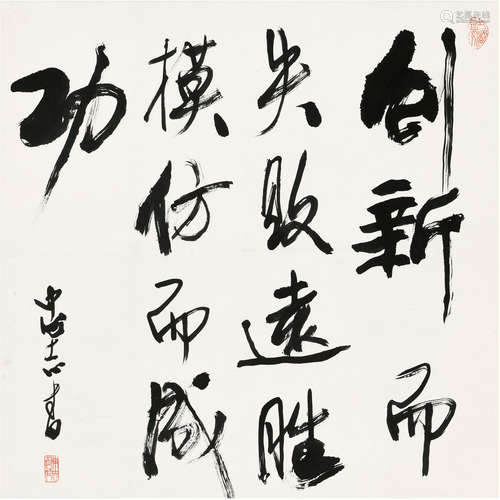 创新而
失败遠胜
模仿而成
功